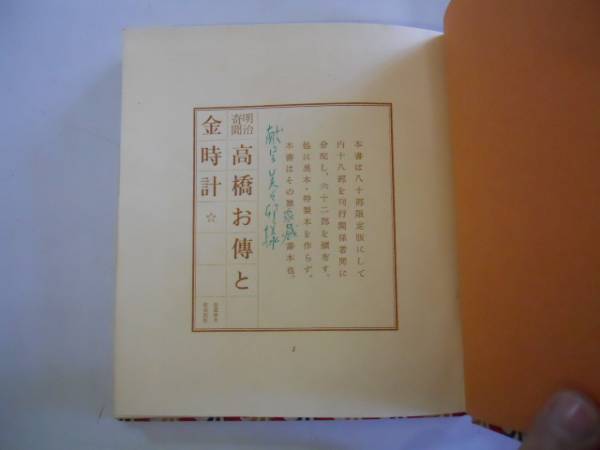 本書は八十部限定版にして
内十八部を刊行関係者間に
分配し、六十二部を頒布す。
他に異本・特製本を作らず。
本書はその家蔵番本也。
明治
奇聞
高橋お傳と
金時計☆
2